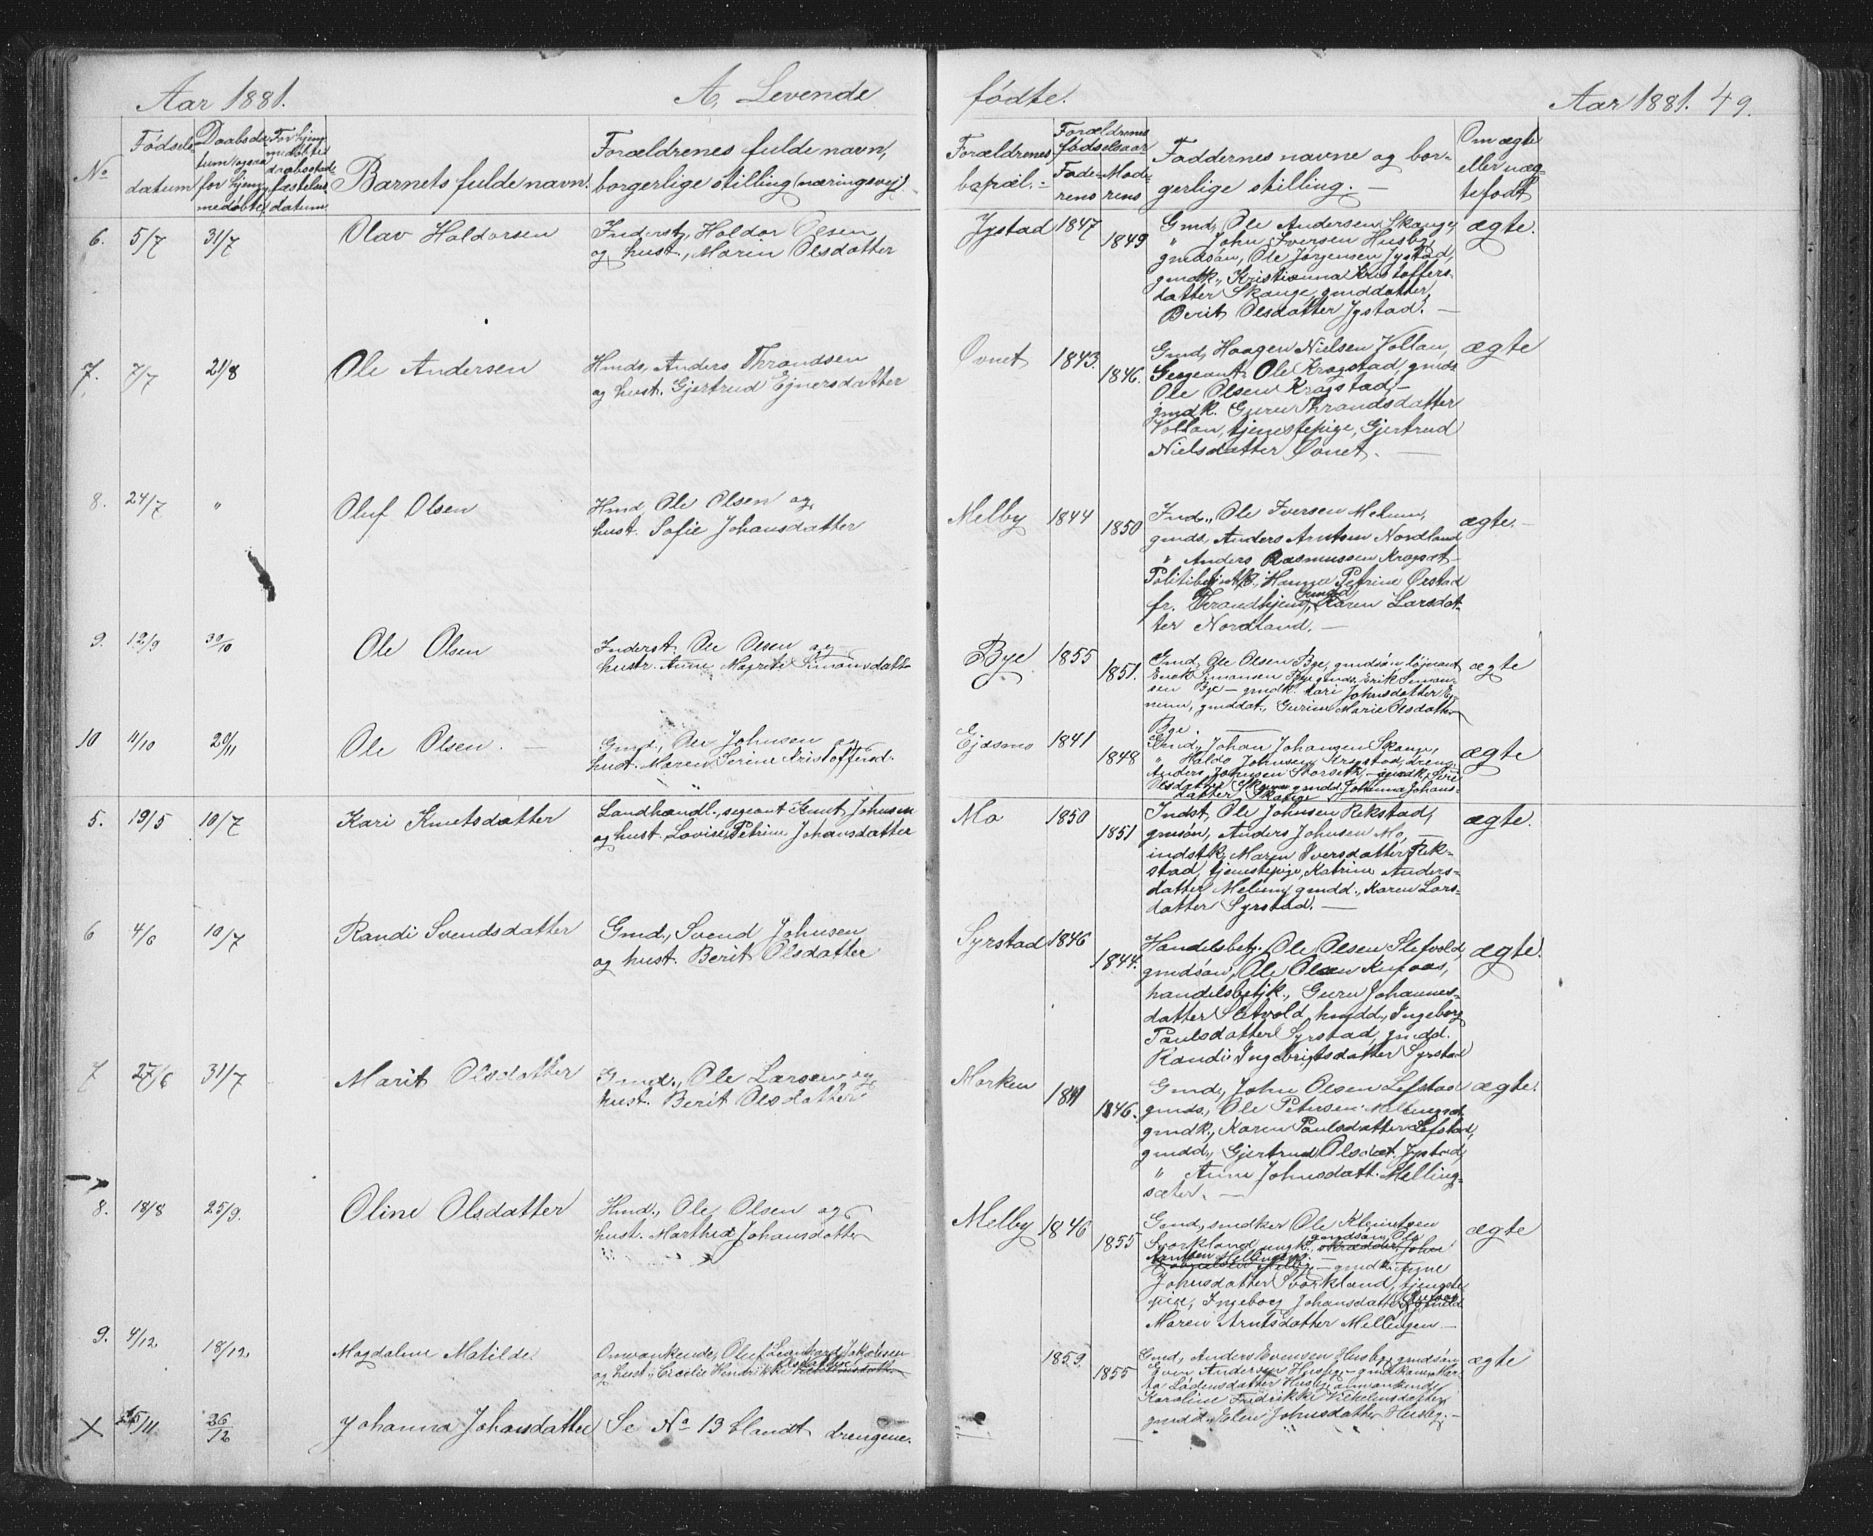 Aar 1881. A, Levende fødte. Aar 1881. 49.
No
Fødsels datum
Daabsda tum (ogsaa for hjem medøbte
For hjem medøbte daabsstad fæstelses datum.
Barnets fulde navn.
Forældrenes fulde navn, borgerlige stilling (næringsvej)
Forældrenes bopæl. -
Forældrenes fødselsaar
Fade- rens
Mod- rens
Faddernes navne og bor- gerlige stilling. -
Om ægte eller uæg- tefødt
6. 5/7 31/7 Olav Haldorsen
Inderst, Haldor Olsen
og hust., Marin Olsdatter
Jystad 1847 1849
Gmd, Ole Andersen Skauge,
" John Iversen Husby,
gmdsøn, Ole Jørgensen Jystad,
gmdk., Kristianna Kristoffers-
datter Skauge, gmddatter,
Berit Olsdatter Jystad. -
ægte.
7. 7/7 21/8 Ole Andersen
Hmds, Anders Thrandsen
og hust. Gjertrud Ejnersdatter
Ovnet 1843. 1846.
Gmd, Haagen Nielsen Vollan,
Sergeant Ole Kragstad, gmds
Ole Olsen Kragstad, -
gmdk. Guru Thrandsdatter
Vollan, tjenestepige, Gjertrud
Nielsdatter Ovnet. -
ægte
8. 24/7 " Oluf Olsen
Hmd, Ole Olsen og
hust. Sofie Johansdatter
Melby 1844 1850
Ind., Ole Iversen Melum,
gmds, Anders Arntsen Nordland
" Anders Rasmussen Kragsæt -
Hanna Petrine Ørstad
fr. Thrandhjem, Gmdd, Karen Larsdat-
ter Nordland. -
ægte. -
9. 12/9 30/10 Ole Olsen
Inderst Ole Olsen og
hustr. Anne Magrete Simonsdatt.
Bye 1855 1851.
Gmd, Ole Olsen Bye, gmdsøn løjnant
Enok Simonsen Bye gmds, Erik Simon-
sen Bye - gmdk. Kari Johnsdatter
gmddat., Gurine Marie Olsdatter
Bye. -
ægte
10 11/10 20/11 Ole Olsen. -
Gmd, Ole Johnsen og
hust. Maren Serine Kristoffersd.
Ejdsmo 1841 1848
Gmd, Johan Johansen Skauge,
" Haldo Johnsen Krogstad, dreng
Anders Johnsen Storset, - gmdk, Siri
Olsdatter Skauge gmdd. Johanna Johans-
datter Skauge
ægte
5. 19/5 10/7 Kari Knutsdatter
Landhandl., sergeant Knut Johnsen
og hust. Lovise Petrine Johansdatter
Mo 1850 1851
Indst, Ole Johnsen Rekstad,
gmdsøn, Anders Johnsen Mo, -
indstk, Maren Iversdatter Rek-
stad, tjenestepige, Katrine Anders-
datter Melum, gmdd., Karen Lars-
datter Syrstad. -
ægte.
6 4/6 10/7 Randi Svendsdatter
Gmd., Svend Johnsen
og hust. Berit Olsdatter
Syrstad 1846 1844.
Handelsbetj. Ole Olsen Sletvold,
gmdsøn, Ole Olsen
handelsbetjk., Guru Johannes-
datter Sletvold, hmdd., Ingeborg
Paulsdatter Syrstad, gmdd.
Randi Ingebrigtsdatter Syrstad
ægte.
7 27/6 31/7 Marit Olsdatter
Gmd., Ole Larsen og
hust. Berit Olsdatter
Morken 1841 1846.
Gmd, John Olsen Lefstad
gmds., Ole Petersen Mellingsæt
gmdk., Karen Paulsdatter Lefstad,
gmdd, Gjertrud Olsdat. Jystad,
" Anne Johnsdatt. Melling-
sæter. -
ægte.
8. 18/8 25/9. Oline Olsdatter
Hmd., Ole Olsen og
hust. Marthea Johansdatter
Melby 1846 1855
Gmd, smdker Ole Klemitsen
Svorkland, ungk. skrædder, John
gmdsøn Ole
Arntsen Mellingen.
Melby - gmdk.
Johnsdatter Svorkland, tjeneste
pige, Ingeborg Johansdatter
Maren Arntsdatter Mellingen -
ægte
9. 4/12 18/12 Magdaline Matilde
Omvankende, Oluf Leonhard Jakobsen
og hust, Cecilie Hendrikke
Olsdatter
1859. 1855
Gmd, Anders Evensen Husby, gmdsøn
Even Andersen Husby - gmdkone, Mar-
ta Lødensdatter Husby, omvankende,
Karoline Fredrikke Vilhelmsdatter
gmdd, Elen Johnsdatter Husby. -
ægte
X 25/11 26/12 Johanna Johansdatter
Se No 13 blandt drengene.